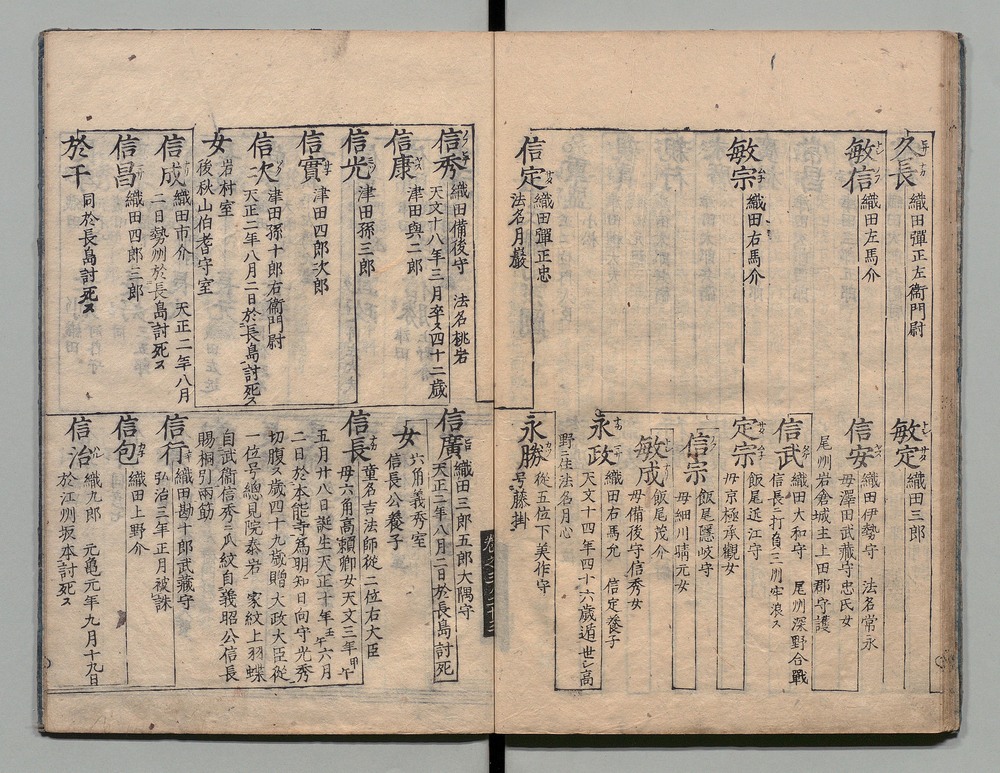 久長
織田彈正左衞門尉
敏信
織田左馬介
敏宗
織田右馬介
信定
織田彈正忠
法名月巖
敏定
織田三郎
信安
織田伊勢守 法名常永
母澤田武藏守忠氏女
尾州岩倉城主上田郡守護
信武
織田大和守 尾州深野合戰
信長ニ打負三州牢浪ス
定宗
飯尾近江守
母京極承觀女
信宗
飯尾隱岐守
母細川晴元女
敏成
飯尾茂介
母備後守信秀女
永政
織田右馬允 信定養子
天文十四年四十六歳遁世シ高
野ニ住法名月心
永勝
從五位下美作守
号藤掛
信秀
織田備後守 法名桃岩
天文十八年三月卒ス四十二歳
信康
津田與二郎
信光
津田孫三郎
信實
津田四郎次郎
信次
津田孫十郎右衞門尉
天正二年八月二日於長島討死ス
女
岩村室
後秋山伯耆守室
信成
織田市介 天正二年八月
二日勢州於長島討死ス
信昌
織田四郎三郎
於千
同於長島討死ス
信廣
織田三郎五郎大隅守
天正二年八月二日於長島討死
女
六角義秀室
信長公養子
信長
童名吉法師從二位右大臣
母六角高賴卿女天文三年甲午
五月廿八日誕生天正十年壬午六月
二日於本能寺爲明知日向守光秀
切腹ス歳四十九歳贈大政大臣從
一位号總見院泰岩 家紋上羽蝶
自武衞信秀ニ瓜紋自義昭公信長
賜桐引兩筋
信行
織田勘十郎武藏守
弘治三年正月被誅
信包
織田上野介
信治
織九郎 元亀元年九月十九日
於江州坂本討死ス